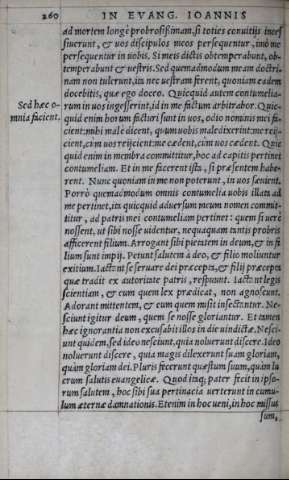 260 IN EVANG. IOANNIS
ad mortem longè probrosissimam, si toties conuitijs incessiuerunt, & uos discipulos meos persequentur, imò me
persequentur in uobis. Si meis dictis obtemperabunt, obtemperabunt & uestris. Sed quemadmodum meam doctrinam non tulerunt, ita nec uestram ferent, quoniam eadem
docebitis, quæ ego doceo. Quicquid autem contumeliarum in uos ingesserint, id in me factum arbitrabor. Quicquid enim horum facturi sunt in uos, odio nominis mei facient: mihi malè dicent, quum uobis maledixerint: me reijcient, cùm uos reijcient: me cædent, cùm uos cædent. Quicquid enim in membra committitur, hoc ad capitis pertinet
contumeliam. Et in me sæuirent isti, si præsentem haberent. Nunc quoniam in me non poterunt, in uos sæuient.
Porrò quemadmodum omnis contumelia uobis illata ad
me pertinet, ita quicquid aduersum meum nomen committitur, ad patris mei contumeliam pertinet: quem si uerè
nossent, ut sibi nosse uidentur, nequaquam tantis probris
afficerent filium. Arrogant sibi pietatem in deum, & in filium sunt impij. Petunt salutem à deo, & filio moliuntur
exitium. Iactant se seruare dei præcepta, & filij præcepta
quæ tradit ex autoritate patris, respuunt. Iactant legis
scientiam, & cum quem lex prædicat, non agnoscunt.
Adorant mittentem, & eum quem misit insectantur. Nesciunt igitur deum, quem se nosse gloriantur. Et tamen
hæc ignorantia non excusabit illos in die uindictæ. Nesciunt quidem, sed ideo nesciunt, quia noluerunt discere. Ideo
noluerunt discere, quia magis dilexerunt suam gloriam,
quàm gloriam dei. Pluris fecerunt quæstum suum, quàm lucrum salutis euangelicæ. Quod inq; pater fecit in ipsorum salutem, hoc sibi sua pertinacia uerterunt in cumulum æternæ damnationis. Etenim in hoc ueni, in hoc missus
sum,
Sed hæc omnia facient.